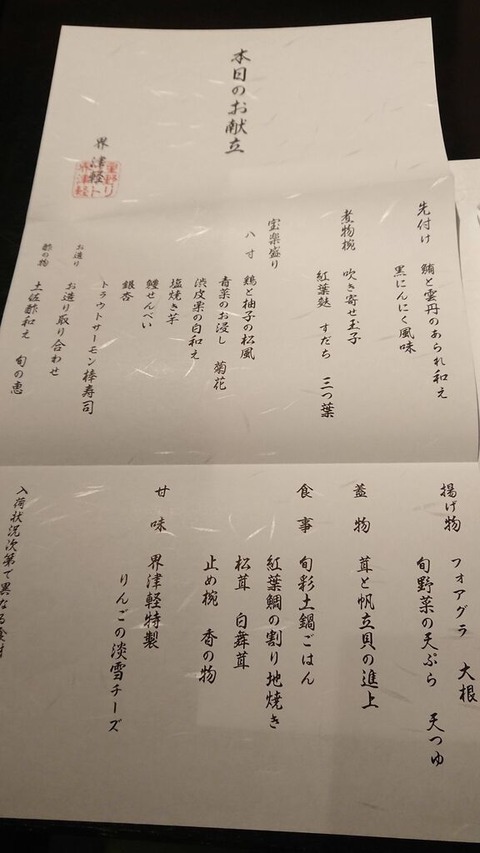 本日のお献立
界 津軽
先付け
鮪と雲丹のあられ和え
黒にんにく風味
煮物椀
吹き寄せ玉子
紅葉麩 すだち 三つ葉
宝楽盛り
八寸
鶏と柚子の松風
青菜のお浸し 菊花
渋皮栗の白和え
塩焼き芋
鰻せんべい
銀杏
トラウトサーモン棒寿司
お造り
お造り取り合わせ
酢の物
土佐酢和え 旬の恵
揚げ物
フォアグラ 大根
旬野菜の天ぷら 天つゆ
蓋物
茸と帆立貝の進上
食事
旬彩土鍋ごはん
紅葉鯛の割り地焼き
松茸 白舞茸
止め椀 香の物
甘味
界津軽特製
りんごの淡雪チーズ
入荷状況次第で異なる